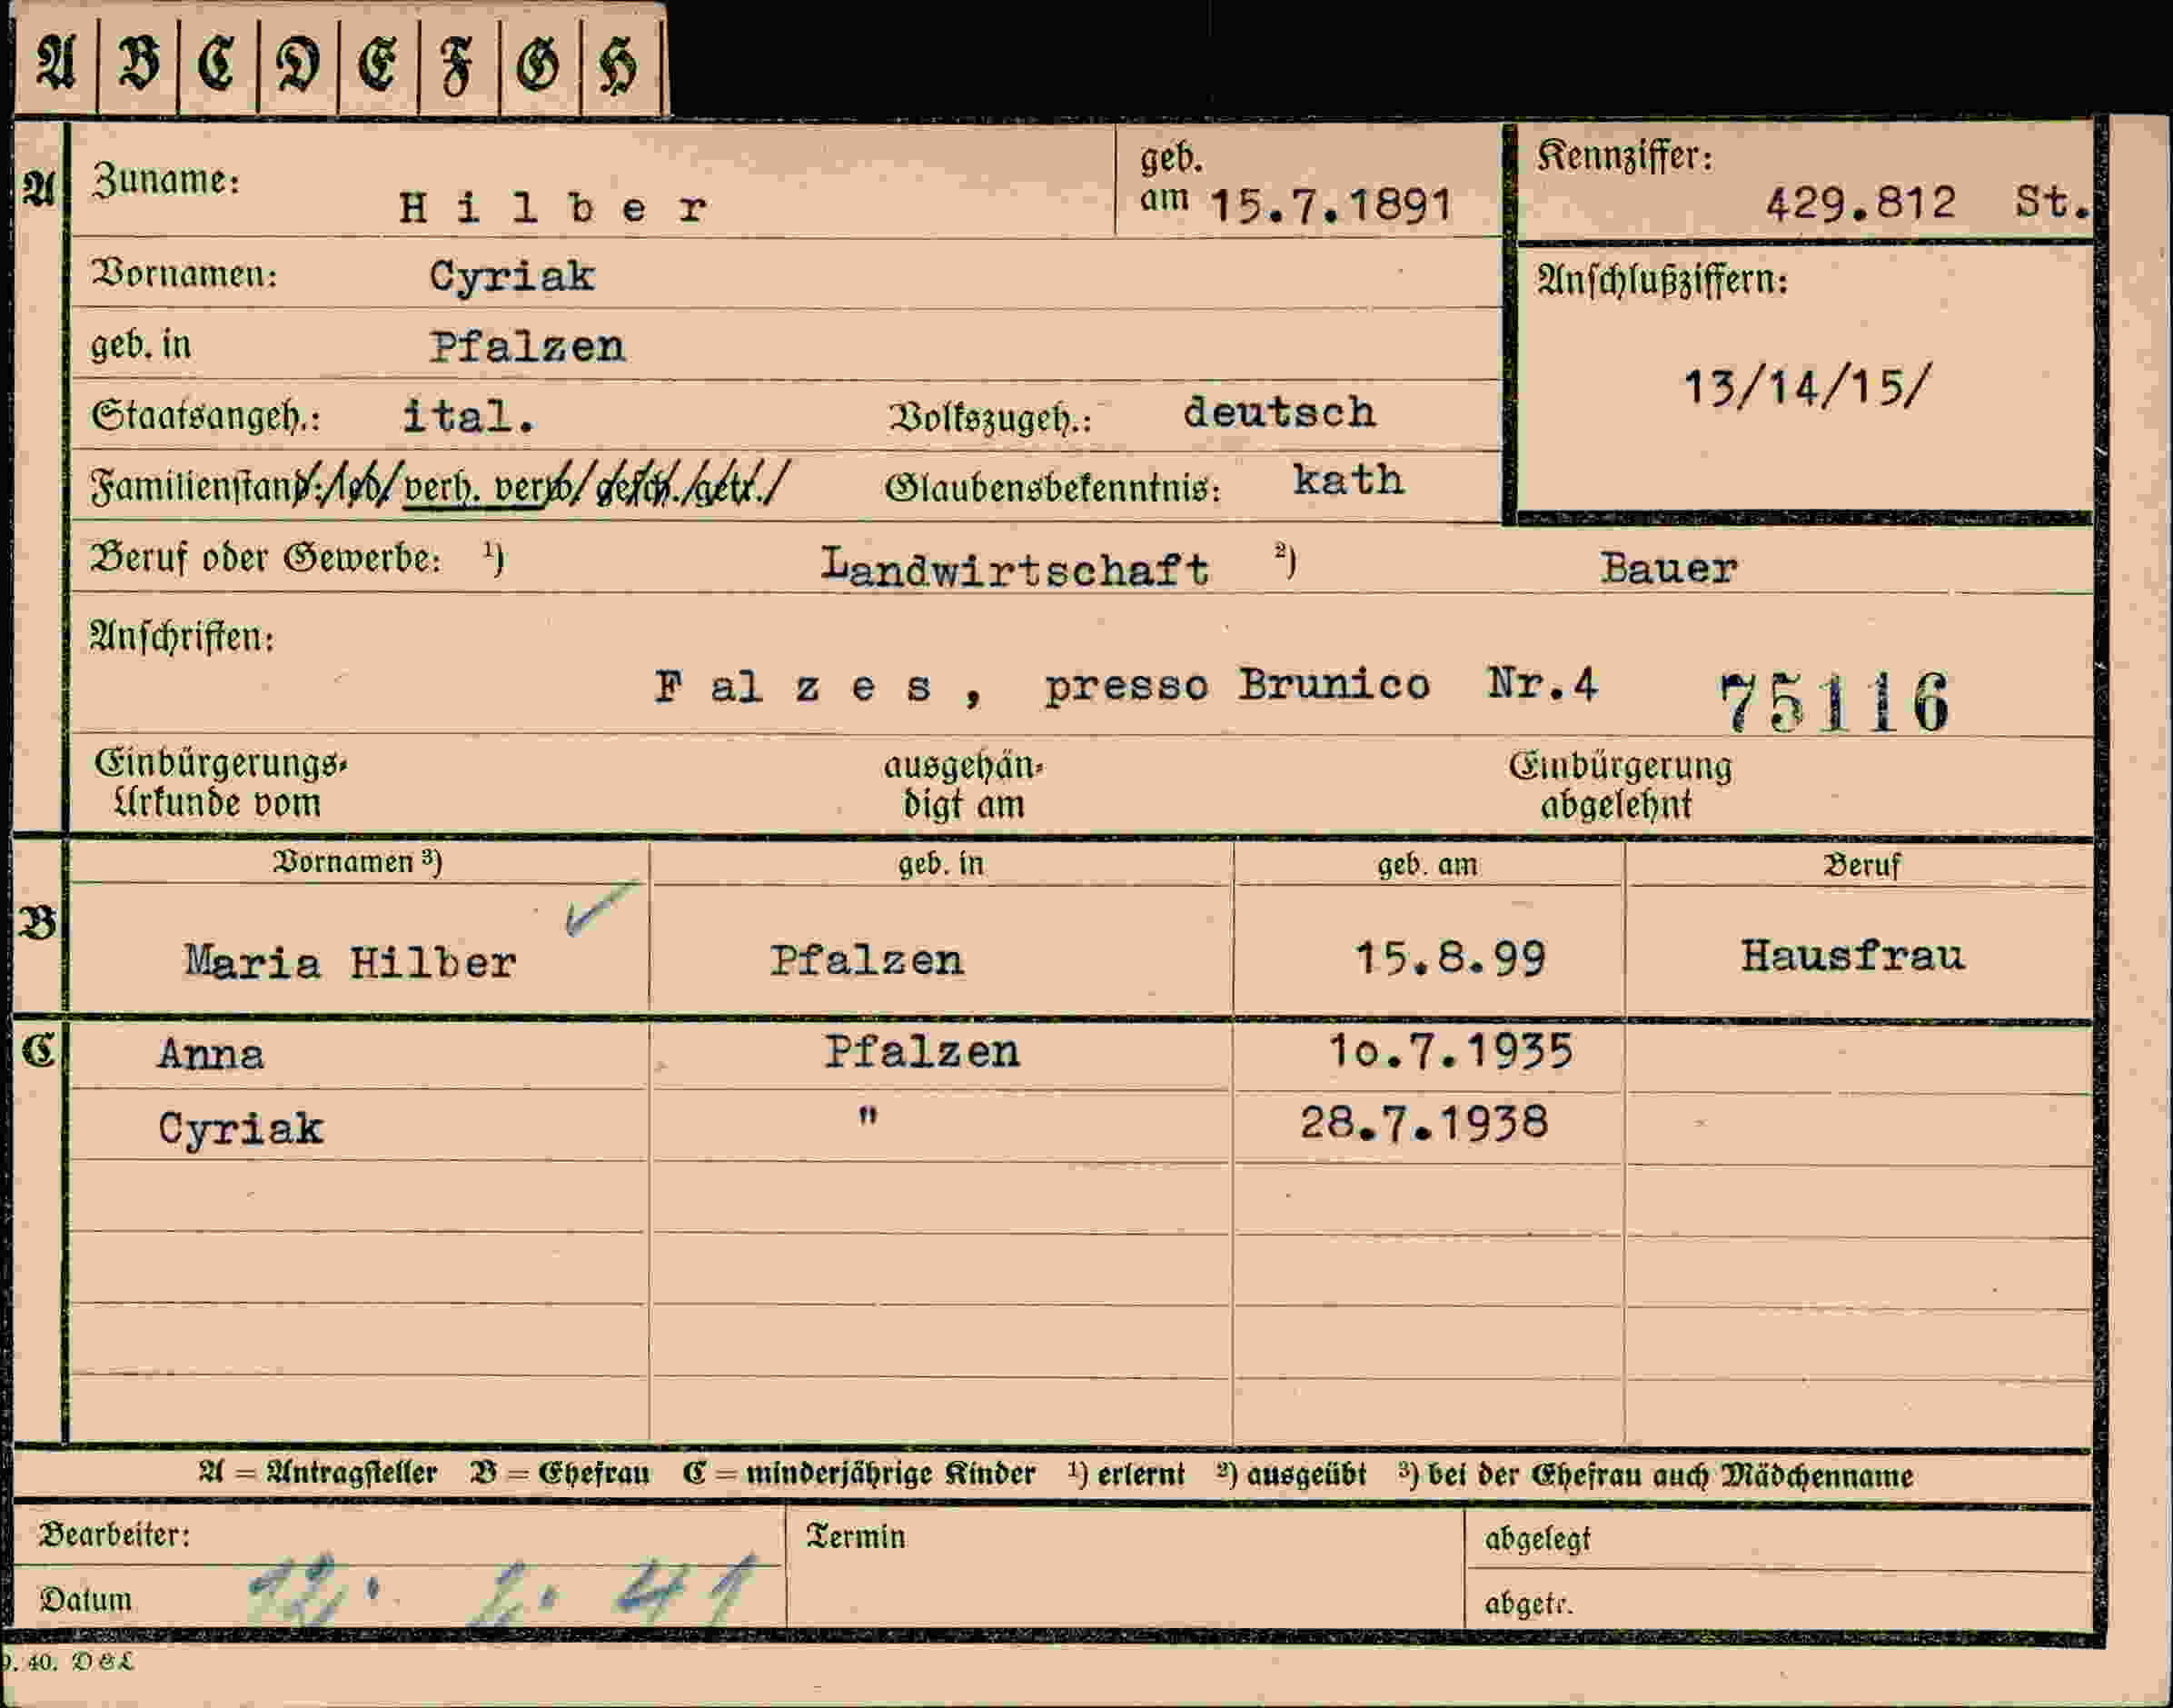 A B C D E F G H
A Zuname: Hilber geb. am 15.7.1891 Kennziffer: 429.812 St.
Vornamen: Cyriak Anschlußziffern:
geb. in Pfalzen 13/14/15/
Staatsangeh.: ital. Volkszugeh.: deutsch
Familienstand: verh. Glaubensbekenntnis: kath
Beruf oder Gewerbe: ¹) Landwirtschaft ²) Bauer
Anschriften:
Falzes, presso Brunico Nr.4 75116
Einbürgerungs- ausgehän- Einbürgerung
Urkunde vom digt am abgelehnt
Vornamen ³) geb. in geb. am Beruf
B Maria Hilber Pfalzen 15.8.99 Hausfrau
C Anna Pfalzen 10.7.1935
Cyriak " 28.7.1938
A = Antragsteller B = Ehefrau C = minderjährige Kinder ¹) erlernt ²) ausgeübt ³) bei der Ehefrau auch Mädchenname
Bearbeiter: Termin abgelegt
Datum 12. 2. 41 abgetr.
9. 40. D&L